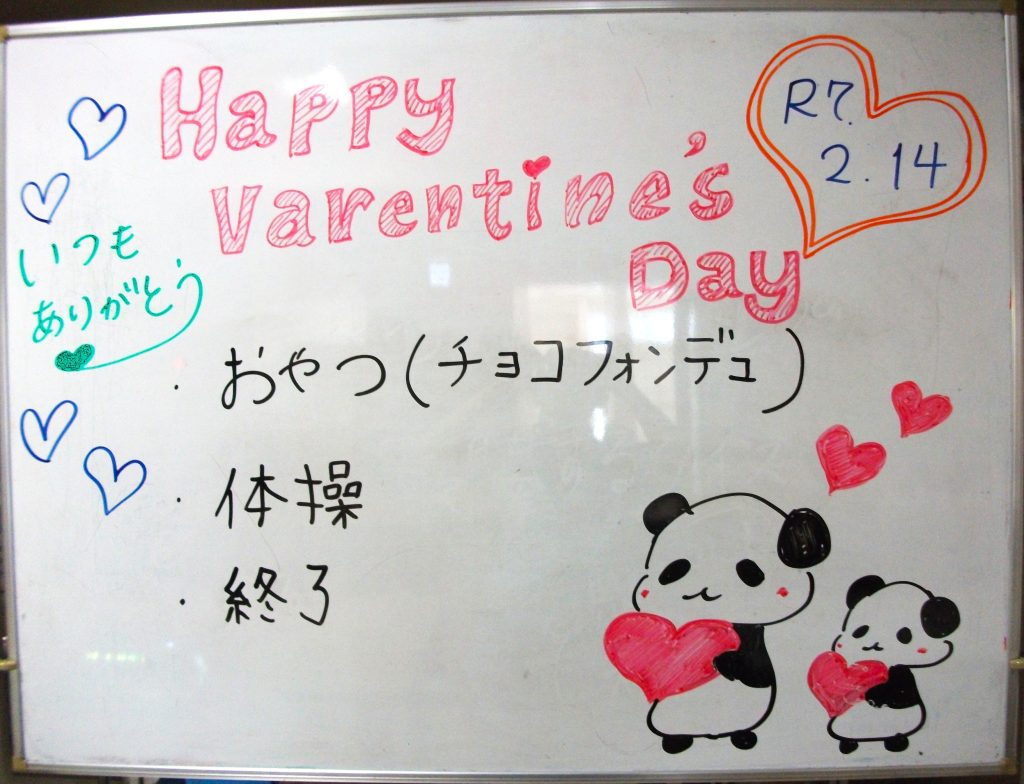 Happy
Varentine's
Day
R7.
2.14
いつも
ありがとう
・おやつ(チョコフォンデュ)
・体操
・終了